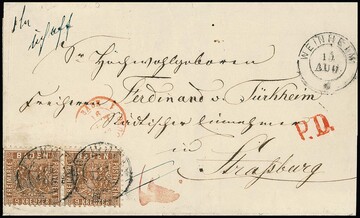 Sr Hochwohlgeboren
WEINHEIM
15
AUG
Freiherrn Ferdinand v. Türkheim
Städtischer Einnehmer
P.D.
in
Straßburg
BADEN BADEN
9 KREUZER 9 KREUZER